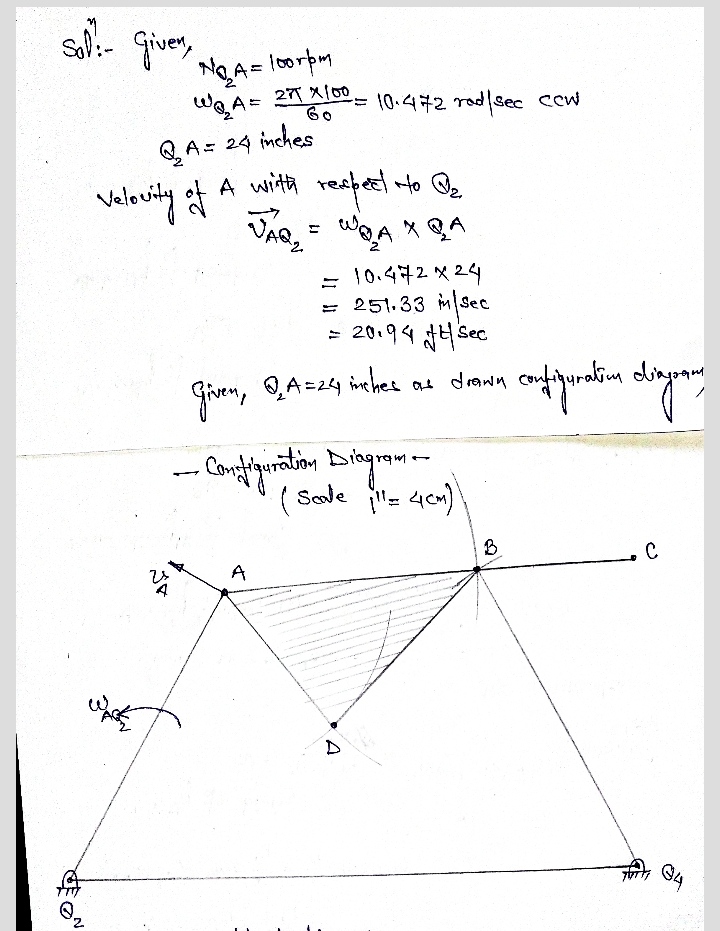 Solⁿ:- Given,
N_{Q₂A} = 100rpm
ω_{Q₂A} = 2π×100/60 = 10.472 rad/sec CCW
Q₂A = 24 inches
Velocity of A with respect to Q₂
V⃗_{AQ₂} = ω_{Q₂A} × Q₂A
= 10.472 × 24
= 251.33 in/sec
= 20.94 ft/sec
Given, Q₂A = 24 inches as drawn configuration diagram,
— Configuration Diagram —
(Scale 1" = 4cm)
B
C
V_A
A
ω_{AQ₂}
D
Q₄
Q₂